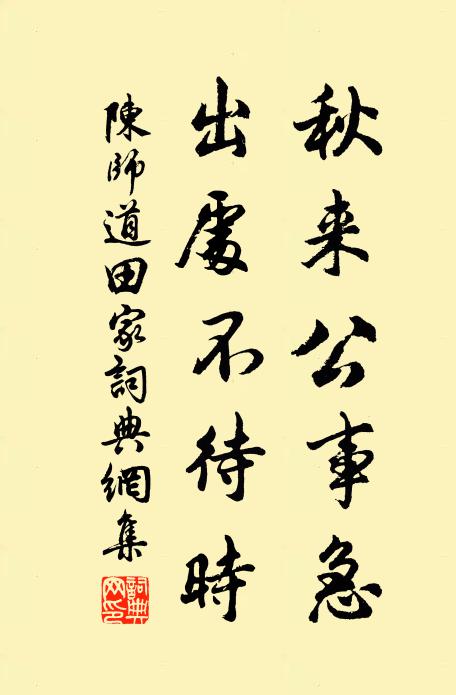 秋来公事急
出處不待時
陳師道田家詞典網集
詞典网印